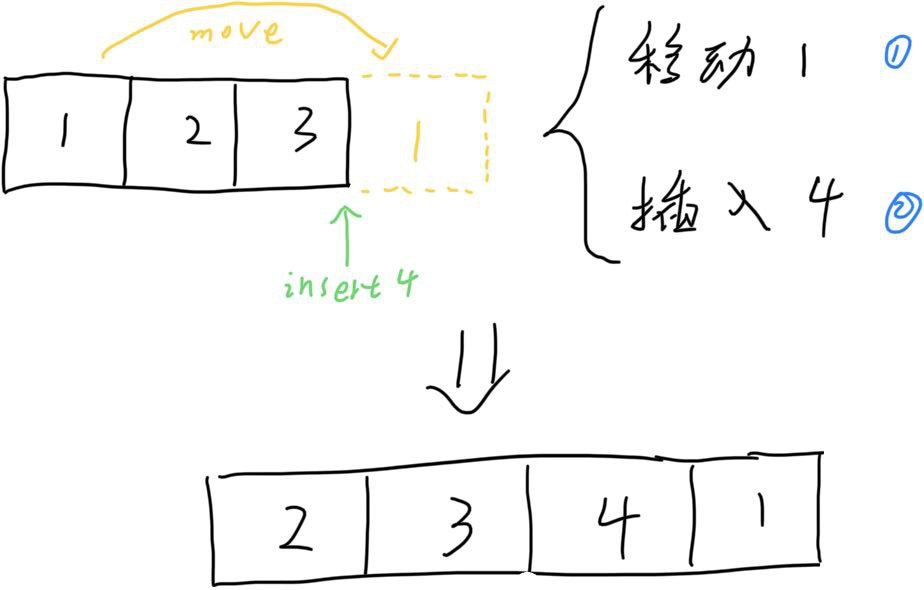 move
1 2 3 1
insert 4
移动 1 ①
插入 4 ②
2 3 4 1